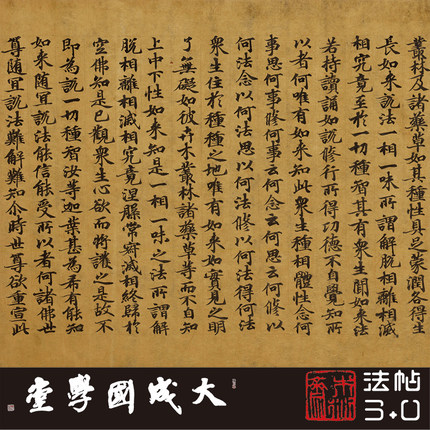 叢林及諸藥草如其種性具足蒙潤各得生
長如来說法一相一味所謂解脫相離相滅
相究竟至於一切種智其有衆生聞如来法
若持讀誦如說修行所得功德不自覺知所
以者何唯有如来知此衆生種相體性念何
事思何事修何事云何念云何思云何修以
何法念以何法思以何法修以何法得何法
衆生住於種種之地唯有如来如實見之明
了無礙如彼卉木叢林諸藥草等而不自知
上中下性如来知是一相一味之法所謂解
脫相離相滅相究竟涅槃常寂滅相終歸於
空佛知是已觀衆生心欲而將護之是故不
即為說一切種智汝等迦葉甚為希有能知
如来随宜說法能信能受所以者何諸佛世
尊随宜說法難解難知尒時世尊欲重宣此
大成國學堂
法帖
3.0